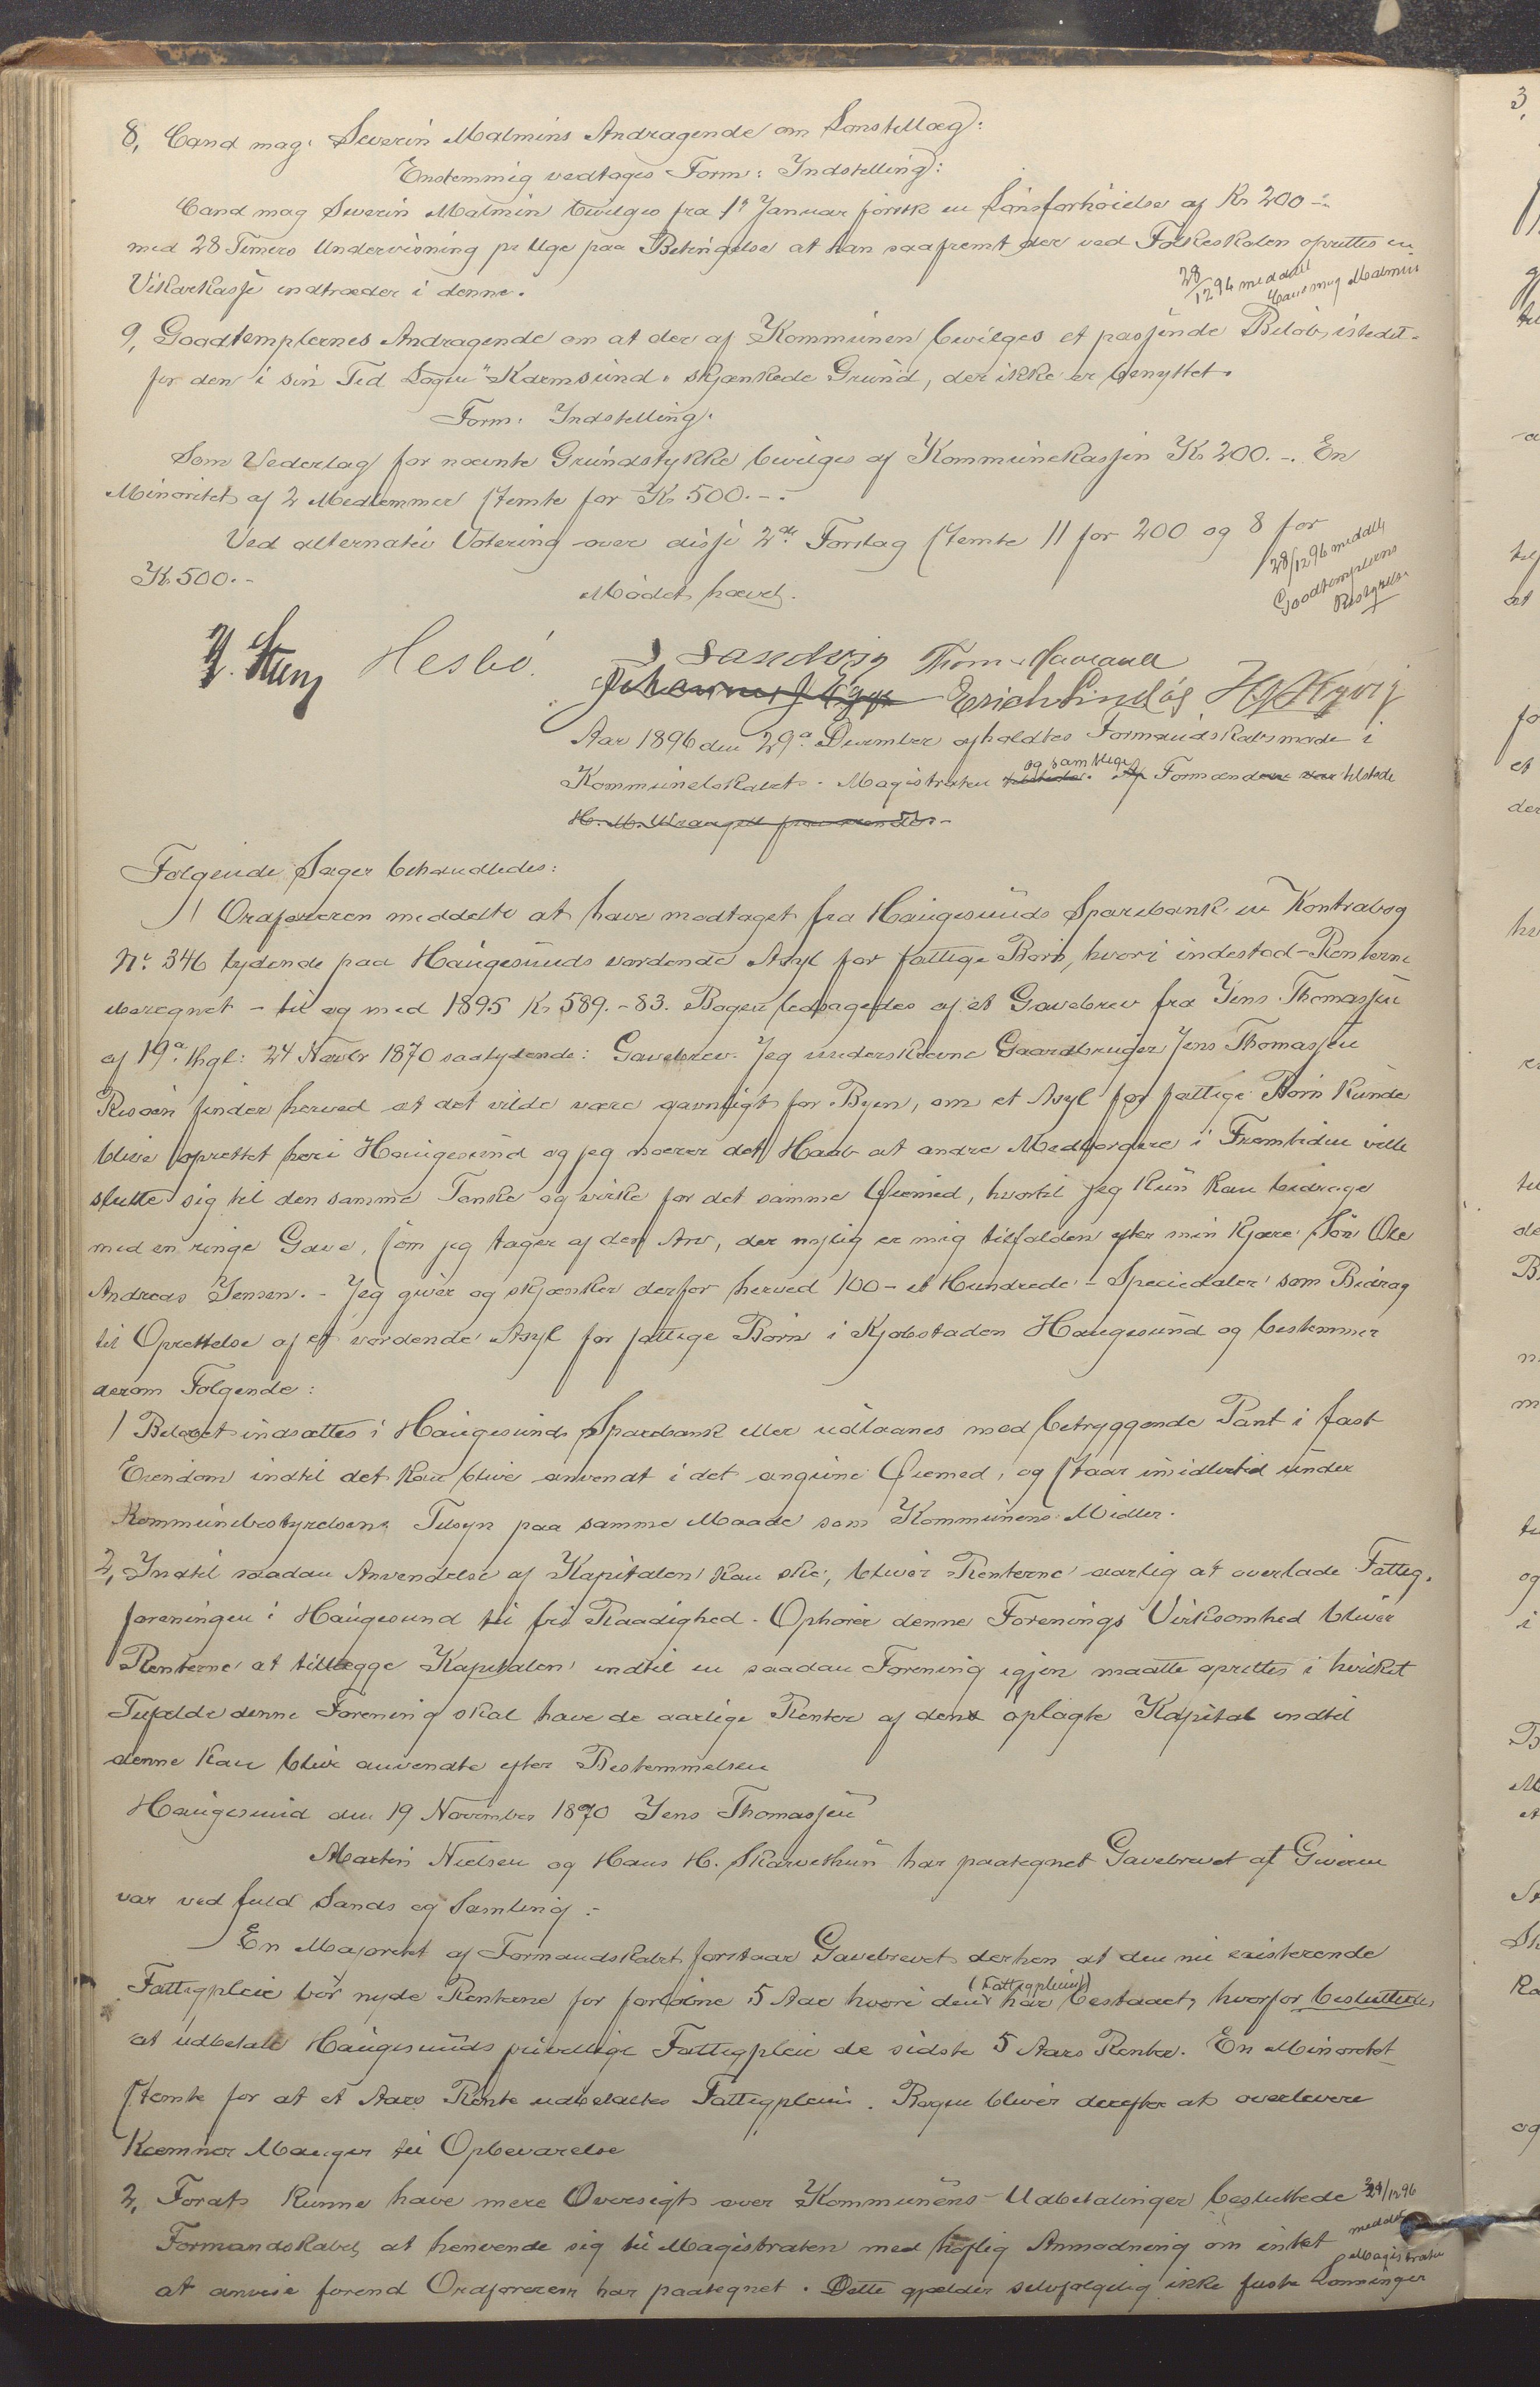 8, Cand mag: Severin Malmins Andragende om Lønstillæg:
Enstemmig vedtages Form: Indstilling:
Cand mag Severin Malmin bevilges fra 1ste Januar førstk en Lønsforhøielse af Kr 200 -
med 28 Timers Undervisning pr Uge paa Betingelse at han saafremt der ved Folkeskolen oprettes en
Vikarkasse indtræder i denne.
28/12 96 meddelt
Cand mag Malmin
9, Goodtemplernes Andragende om at der af Kommunen bevilges et passende Beløb, istedet-
for den i sin Tid Logen "Karmsund" skjænkede Grund, der ikke er benyttet.
Form: Indstilling.
Som Vederlag for nævnte Grundstykke bevilges af Kommunekassen Kr 200. -. En
Minoritet af 2 Medlemmer stemte for Kr 500. -.
Ved alternativ Votering over disse 2de Forslag stemte 11 for 200 og 8 for
Kr 500. -
28/12 96 meddelt
Goodtemplerens
Bestyrelse
Mødet hævet.
Hesbö. J Sandvig Thom. Haaland
Erich Lindøe
Aar 1896 den 29de December afholdtes Formandskabsmøde i
Kommunelokalet. Magistraten og samtlige Formænd tilstede
Følgende Sager behandledes:
1 Ordføreren meddelte at have modtaget fra Haugesunds Sparebank en Kontrabog
Nr. 346 lydende paa Haugesunds vordende Asyl for fattige Børn, hvori indestod - Renterne
iberegnet - til og med 1895 Kr 589. - 83. Bogen ledsagedes af et Gavebrev fra Jens Thomassen
af 19de thgl: 24 Novbr 1870 saalydende: Gavebrev. Jeg underskrevne Gaardbruger Jens Thomassen
Risøen finder herved at det vilde være gavnligt for Byen, om et Asyl for fattige Børn kunde
blive oprettet her i Haugesund og jeg nærer det Haab at andre Medborgere i Fremtiden ville
slutte sig til den samme Tanke og virke for det samme Øiemed, hvortil jeg kun kan bidrage
med en ringe Gave, som jeg tager af den Arv, der nylig er mig tilfalden efter min kjære Søn Ole
Andreas Jensen. - Jeg giver og skjænker derfor herved 100 - et Hundrede - Speciedaler som Bidrag
til Oprettelse af et vordende Asyl for fattige Børn i Kjøbstaden Haugesund og bestemmer
derom Følgende:
1 Beløbet indsættes i Haugesunds Sparebank eller udlaanes mod betryggende Pant i fast
Eiendom indtil det kan blive anvendt i det angivne Øiemed, og staar imidlertid under
Kommunebestyrelsens Tilsyn paa samme Maade som Kommunens Midler.
2, Indtil saadan Anvendelse af Kapitalen kan ske, bliver Renterne aarlig at overlade Fattig-
foreningen i Haugesund til fri Raadighed. Ophører denne Forenings Virksomhed bliver
Renterne at tillægge Kapitalen indtil en saadan Forening igjen maatte oprettes i hvilket
Tilfælde denne Forening skal have de aarlige Renter af den oplagte Kapital indtil
denne kan blive anvendte efter Bestemmelsen
Haugesund den 19 November 1870 Jens Thomassen
Martin Nielsen og Hans H. Skarvethun har paategnet Gavebrevet at Giveren
var ved fuld Sands og Samling. -
En Majoritet af Formandskabet forstaar Gavebrevet derhen at den nu existerende
Fattigpleie bør nyde Renterne for forløbne 5 Aar hvori den (Fattigpleien) har bestaaet, hvorfor besluttedes
at udbetale Haugesunds frivillige Fattigpleie de sidste 5 Aars Renter. En Minoritet
stemte for at et Aars Rente udbetaltes Fattigpleien. Bogen bliver derefter at overlevere
Kæmner Mauger til Opbevarelse
2, Forat kunne have mere Oversigt over Kommunens Udbetalinger besluttede
Formandskabet at henvende sig til Magistraten med høflig Anmodning om intet
at anvise førend Ordføreren har paategnet. Dette gjælder selvfølgelig ikke faste Lønninger
29/12 96
meddelt
Magistraten